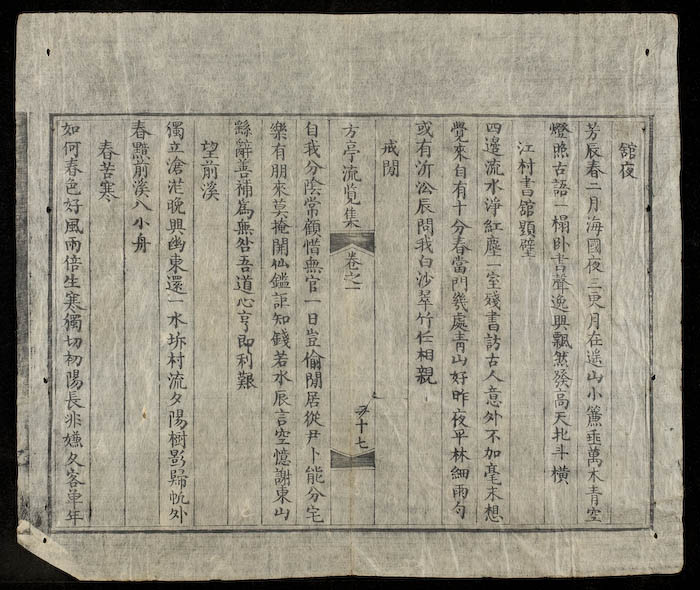 舘夜
芳辰春二月海國夜三更月在遥山小簾垂萬木青空
燈照古語一榻臥書聲逸興飄然發高天北斗橫
江村書舘題壁
四邊流水淨紅塵一室殘書訪古人意外不加毫末想
覺來自有十分春當門幾處青山好昨夜平林細雨勻
或有沂公辰問我白沙翠竹任相親
戒閒
方亭流覧集
卷之一
五十七
自我分陰常顧惜無官一日豈偷閒居從尹卜能分宅
樂有朋來莫掩關仙鑑詎知錢若水辰言空憶謝東山
繇辭善補爲無咎吾道心亨即利艱
望前溪
獨立滄茫晚興幽東還一水坼村流夕陽樹影歸帆外
春黯前溪八小舟
春苦寒
如何春色好風雨倍生寒獨切初陽長非嫌久客單年